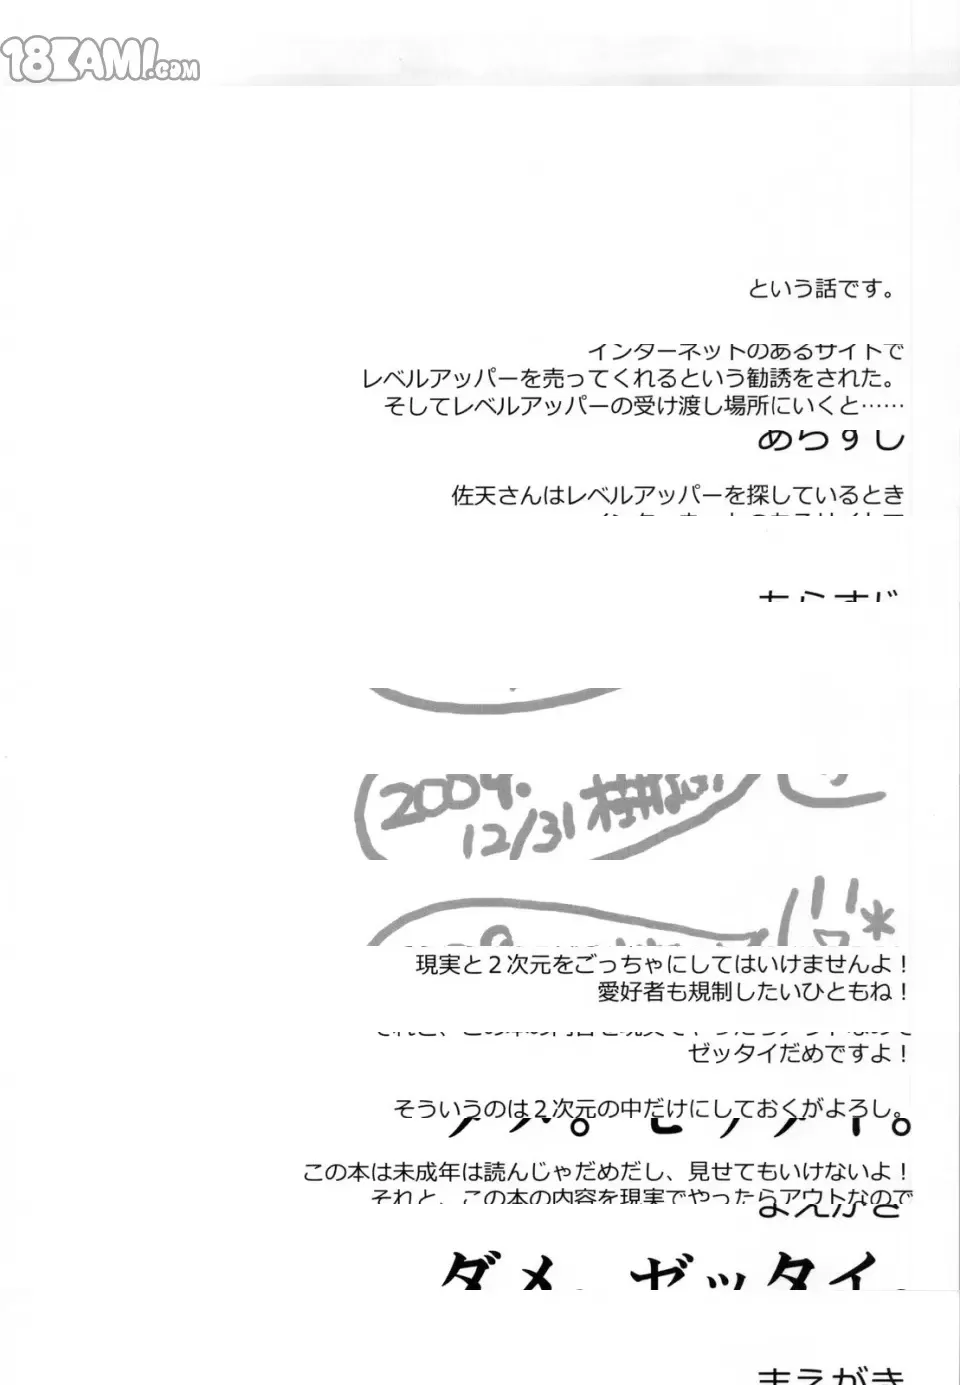 18KAMI.COM
という話です。
インターネットのあるサイトで
レベルアッパーを売ってくれるという勧誘をされた。
そしてレベルアッパーの受け渡し場所にいくと……
あらすじ
佐天さんはレベルアッパーを探しているとき
インターネットのあるサイトで
あらすじ
2009.
12/31
現実と２次元をごっちゃにしてはいけませんよ！
愛好者も規制したいひともね！
それと、この本の内容を現実でやったらアウトなので
ゼッタイだめですよ！
そういうのは２次元の中だけにしておくがよろし。
この本は未成年は読んじゃだめだし、見せてもいけないよ！
それと、この本の内容を現実でやったらアウトなので
まえがき
ダメ。ゼッタイ。
まえがき